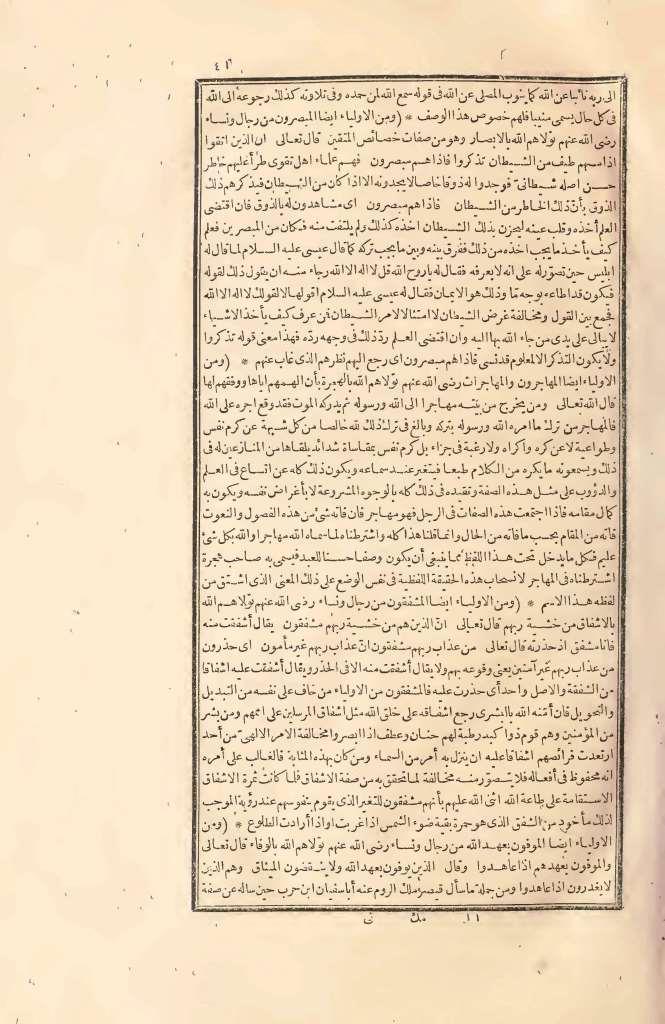 ٤١
الى ربه نائبا عن الله كما ينوب المصلى عن الله فى قوله سمع الله لمن حمده وفى تلاوته كذلك رجوعه الى الله
فى كل حال يسمى منيبا فلهم خصوص هذا الوصف * (ومن الاولياء ايضا المبصرون من رجال ونساء
رضى الله عنهم تولاهم الله بالابصار وهو من صفات خصائص المتقين قال تعالى ان الذين اتقوا
اذا مسهم طيف من الشيطان تذكروا فاذا هم مبصرون فهم علماء اهل تقوى طرأ عليهم خاطر
حسن اصله شيطانى فوجدوا له ذوقا خاصا لا يجدونه الا اذا كان من الشيطان فيذكرهم ذلك
الذوق بأن ذلك الخاطر من الشيطان فاذا هم مبصرون اى مشاهدون له بالذوق فان اقتضى
العلم أخذه وقلب عينه ليحزن بذلك الشيطان اخذه كذلك ولم يلتفت منه فكان من المبصرين فعلم
كيف يأخذ ما يجب اخذه من ذلك ففرق بينه وبين ما يجب تركه كما قال عيسى عليه السلام لما قال له
ابليس حين تصور له على انه لا يعرفه فقال له ياروح الله قل لا اله الا الله رجاء منه ان يقول ذلك لقوله
فيكون قد اطاعه بوجه ما وذلك هو الايمان فقال له عيسى عليه السلام اقولها لا لقولك لا اله الا الله
فجمع بين القول ومخالفة غرض الشيطان لا امتثالا لامر الشيطان فمن عرف كيف يأخذ الاشياء
لا يبالى على يدى من جاء الله بها اليه وان اقتضى العلم رد ذلك فى وجهه رده فهذا معنى قوله تذكروا
ولا يكون التذكر الا لمعلوم قد نسى فاذا هم مبصرون اى رجع اليهم نظرهم الذى غاب عنهم * (ومن
الاولياء ايضا المهاجرون والمهاجرات رضى الله عنهم تولاهم الله بالهجرة بأن الهمهم اياها ووفقهم لها
قال الله تعالى ومن يخرج من بيته مهاجرا الى الله ورسوله ثم يدركه الموت فقد وقع اجره على الله
فالمهاجر من ترك ما امره الله ورسوله بتركه وبالغ فى ترك ذلك لله خالصا من كل شبهة عن كرم نفس
وطواعية لا عن كره واكراه ولا رغبة فى جزاء بل كرم نفس بمقاساة شدائد يلقاها من المنازعين له فى
ذلك ويسمعونه ما يكره من الكلام طبعا فيتغير عند سماعه ويكون ذلك كله عن اتساع فى العلم
والدؤوب على مثل هذه الصفة وتقيده فى ذلك كله بالوجوه المشروعة لا بأغراض نفسه ويكون به
كمال مقامه فاذا اجتمعت هذه الصفات فى الرجل فهو مهاجر فان فاته شئ من هذه الفصول والنعوت
فاته من المقام بحسب ما فاته من الحال وانما قلنا هذا كله واشترطناه لما سماه الله مهاجرا والله بكل شئ
عليم فكل ما يدخل تحت هذا اللفظ مما ينبغى أن يكون وصفا حسنا للعبد فيسمى به صاحب هجرة
اشترطناه فى المهاجر لانسحاب هذه الحقيقة اللفظية فى نفس الوضع على ذلك المعنى الذى اشتق من
لفظه هذا الاسم * (ومن الاولياء ايضا المشفقون من رجال ونساء رضى الله عنهم تولاهم الله
بالاشفاق من خشية ربهم قال تعالى ان الذين هم من خشية ربهم مشفقون يقال أشفقت منه
فانا مشفق اذ حذرته قال تعالى من عذاب ربهم مشفقون ان عذاب ربهم غير مأمون اى حذرون
من عذاب ربهم غير آمنين يعنى وقوعه بهم ولا يقال أشفقت منه الا فى الحذر ويقال أشفقت عليه اشفاقا
من الشفقة والاصل واحد أى حذرت عليه فالمشفقون من الاولياء من خاف على نفسه من التبديل
والتحويل فان أمنه الله بالبشرى رجع اشفاقه على خلق الله مثل اشفاق المرسلين على اممهم ومن بشر
من المؤمنين وهم قوم ذوا كبد رطبة لهم حنان وعطف اذا ابصروا مخالفة الامر الالهى من أحد
ارتعدت فرائصهم اشفاقا عليه ان ينزل به أمر من السماء ومن كان بهذه المثابة فالغالب على أمره
انه محفوظ فى أفعاله فلا يتصور منه مخالفة لما تحقق به من صفة الاشفاق فلما كانت ثمرة الاشفاق
الاستقامة على طاعة الله اثنى الله عليهم بأنهم مشفقون للتغير الذى يقوم بنفوسهم عند رؤية الموجب
لذلك مأخوذ من الشفق الذى هو حمرة بقية ضوء الشمس اذا غربت او اذا أرادت الطلوع * (ومن
الاولياء ايضا الموفون بعهد الله من رجال ونساء رضى الله عنهم تولاهم الله بالوفاء قال تعالى
والموفون بعهدهم اذا عاهدوا وقال الذين يوفون بعهد الله ولا ينقضون الميثاق وهم الذين
لا يغدرون اذا عاهدوا ومن جملة ما سأل قيصر ملك الروم عنه أبا سفيان ابن حرب حين ساله عن صفة
١١ مك نى